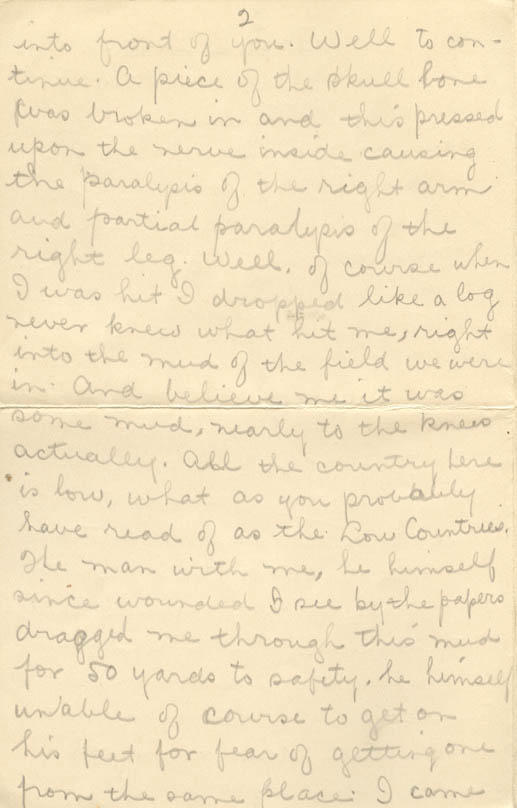 2
into front of you. Well to con-
tinue. A piece of the skull bone
was broken in and this pressed
upon the nerve inside causing
the paralysis of the right arm
and partial paralysis of the
right leg. Well, of course when
I was hit I dropped like a log
never knew what hit me, right
into the mud of the field we were
in. And believe me it was
some mud, nearly to the knees
actually. All the country here
is low, what as you probably
have read of as the Low Countries.
The man with me, he himself
since wounded I see by the papers
dragged me through this mud
for 50 yards to safety. he himself
unable of course to get on
his feet for fear of getting one
from the same place. I came